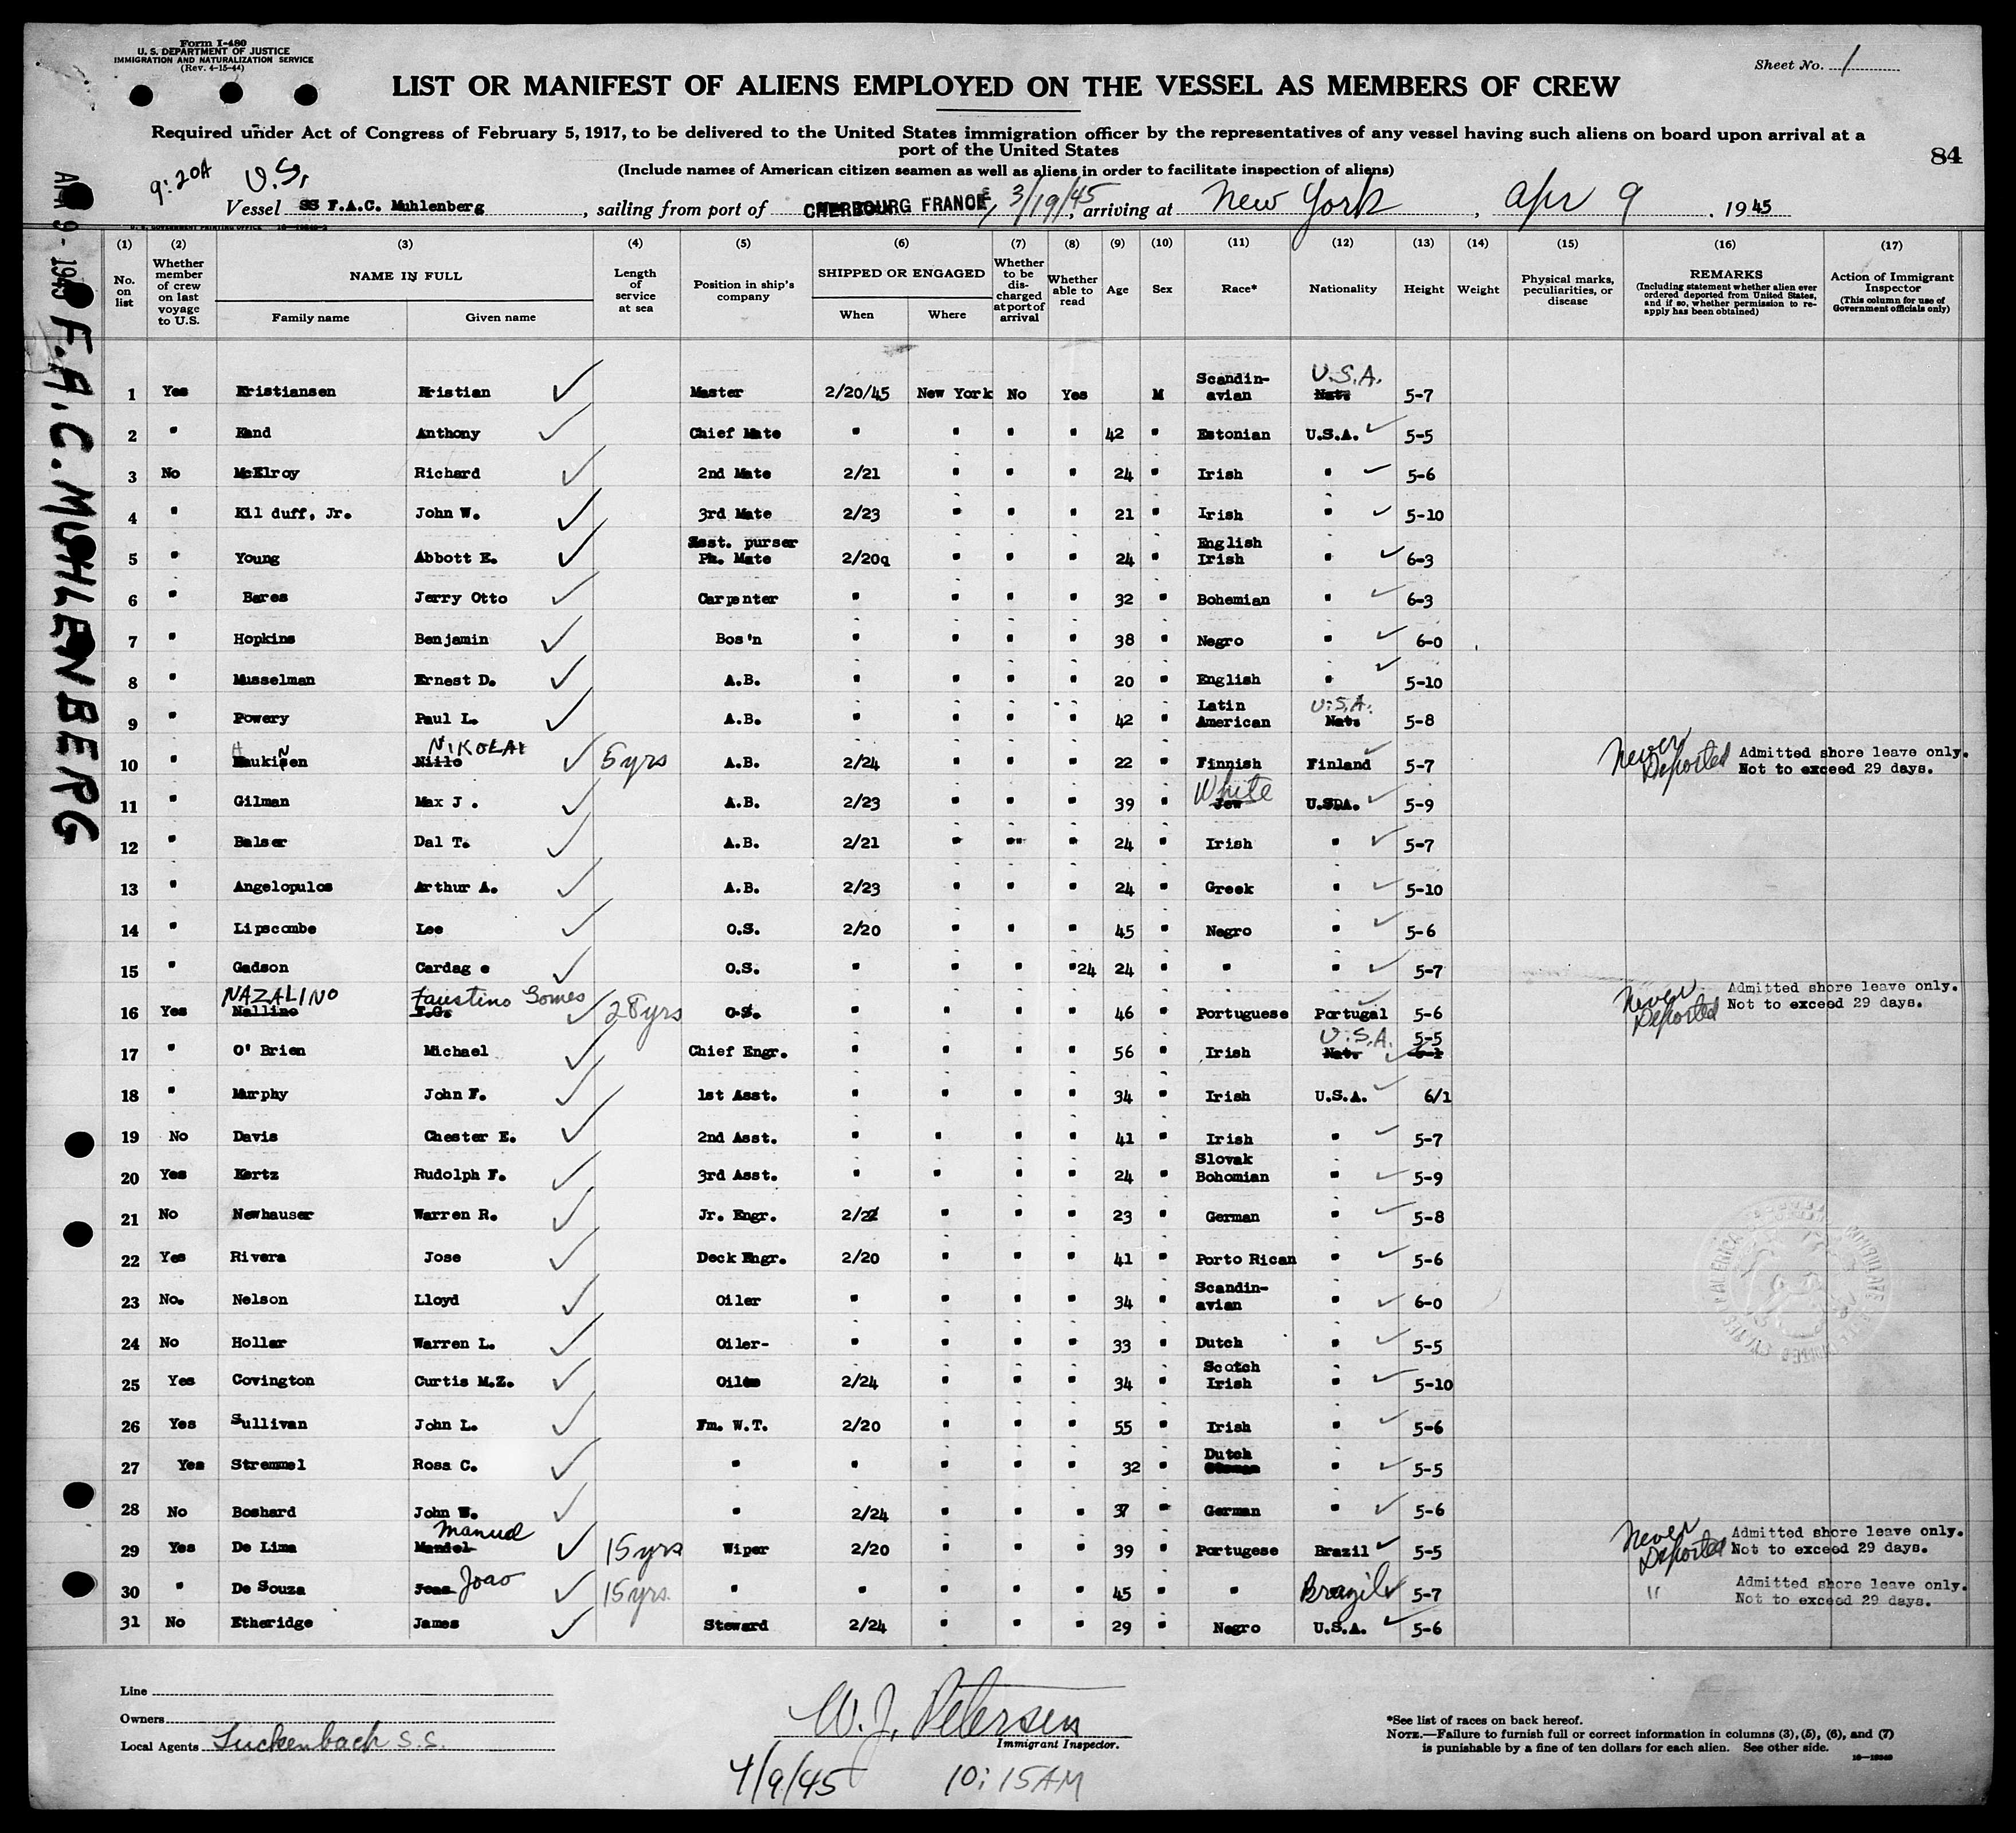 Form I-480
U. S. DEPARTMENT OF JUSTICE
IMMIGRATION AND NATURALIZATION SERVICE
(Rev. 4-15-44)
Sheet No. 1
LIST OR MANIFEST OF ALIENS EMPLOYED ON THE VESSEL AS MEMBERS OF CREW
Required under Act of Congress of February 5, 1917, to be delivered to the United States immigration officer by the representatives of any vessel having such aliens on board upon arrival at a
port of the United States
84
(Include names of American citizen seamen as well as aliens in order to facilitate inspection of aliens)
9:20A U.S.
Vessel SS F.A.C. Muhlenberg, sailing from port of CHERBOURG FRANCE, 3/19/45, arriving at New York, Apr 9, 1945
F.A.C. MUHLENBERG
(1) (2) (3) (4) (5) (6) (7) (8) (9) (10) (11) (12) (13) (14) (15) (16) (17)
No. on list
Whether member of crew on last voyage to U.S.
NAME IN FULL
Family name Given name
Length of service at sea
Position in ship's company
SHIPPED OR ENGAGED
When Where
Whether to be discharged at port of arrival
Whether able to read
Age Sex Race* Nationality Height Weight
Physical marks, peculiarities, or disease
REMARKS
(Including statement whether alien ever ordered deported from United States, and if so, whether permission to re-apply has been obtained)
Action of Immigrant Inspector
(This column for use of Government officials only)
1 Yes Kristiansen Kristian Master 2/20/45 New York No Yes M Scandin-avian Nat. U.S.A. 5-7
2 " Kand Anthony Chief Mate " " " " 42 " Estonian U.S.A. 5-5
3 No McElroy Richard 2nd Mate 2/21 " " " 24 " Irish " 5-6
4 " Kil duff, Jr. John W. 3rd Mate 2/23 " " " 21 " Irish " 5-10
5 " Young Abbott E. Asst. purser Ph. Mate 2/20q " " " 24 " English Irish " 6-3
6 " Bares Jerry Otto Carpenter " " " " 32 " Bohemian " 6-3
7 " Hopkins Benjamin Bos'n " " " " 38 " Negro " 6-0
8 " Musselman Ernest D. A.B. " " " " 20 " English " 5-10
9 " Powery Paul L. A.B. " " " " 42 " Latin American Nat. U.S.A. 5-8
10 " Niilo NIKOLAI 5 yrs A.B. 2/24 " " " 22 " Finnish Finland 5-7 Never Deported Admitted shore leave only. Not to exceed 29 days.
11 " Gilman Max J. A.B. 2/23 " " " 39 " Jew White U.SDA. 5-9
12 " Balser Dal T. A.B. 2/21 " " " 24 " Irish " 5-7
13 " Angelopulos Arthur A. A.B. 2/23 " " " 24 " Greek " 5-10
14 " Lipscombe Lee O.S. 2/20 " " " 45 " Negro " 5-6
15 " Gadson Cardag e O.S. " " " "24 24 " " " 5-7
16 Yes Nalline NAZALINO T.G. Faustino Gomes 28 yrs O.S. " " " " 46 " Portuguese Portugal 5-6 Never Deported Admitted shore leave only. Not to exceed 29 days.
17 " O' Brien Michael Chief Engr. " " " " 56 " Irish Nat. U.S.A. 5-5
18 " Murphy John F. 1st Asst. " " " " 34 " Irish U.S.A. 6/1
19 No Davis Chester E. 2nd Asst. " " " " 41 " Irish " 5-7
20 Yes Kertz Rudolph F. 3rd Asst. " " " " 24 " Slovak Bohomian " 5-9
21 No Newhauser Warren R. Jr. Engr. " " " 23 " German " 5-8
22 Yes Rivera Jose Deck Engr. 2/20 " " " 41 " Porto Rican " 5-6
23 No. Nelson Lloyd Oiler " " " " 34 " Scandin-avian " 6-0
24 No Hollar Warren L. Oiler- " " " " 33 " Dutch " 5-5
25 Yes Covington Curtis M.Z. 2/24 " " " 34 " Scotch Irish " 5-10
26 Yes Sullivan John L. Fm. W.T. 2/20 " " " 55 " Irish " 5-6
27 Yes Stremmel Ross C. " " " " " 32 " Dutch " 5-5
28 No Boshard John W. " 2/24 " " " 37 " German " 5-6
29 Yes De Lima Mandel Manuel 15 yrs Wiper 2/20 " " " 39 " Portugese Brazil 5-5 Never Deported Admitted shore leave only. Not to exceed 29 days.
30 " De Souza Joao 15 yrs. " " " " " 45 " " Brazil 5-7 " Admitted shore leave only. Not to exceed 29 days.
31 No Etheridge James Steward 2/24 " " " 29 " Negro U.S.A. 5-6
Line
Owners
Local Agents Luckenbach S.S.
W. J. Petersen
Immigrant Inspector.
4/9/45 10:15AM
*See list of races on back hereof.
NOTE.—Failure to furnish full or correct information in columns (3), (5), (6), and (7)
is punishable by a fine of ten dollars for each alien. See other side.